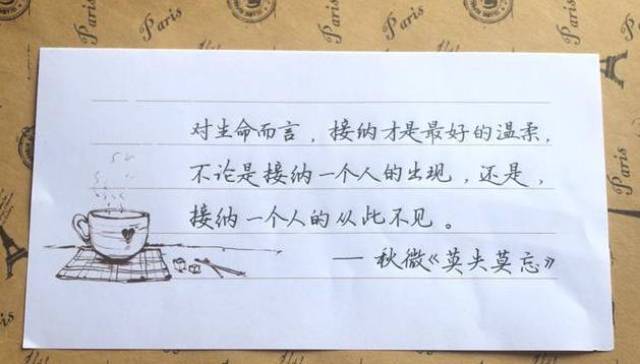 Paris
Paris
Paris
Paris
Paris
对生命而言，接纳才是最好的温柔，
不论是接纳一个人的出现，还是，
接纳一个人的从此不见。
— 秋微《莫失莫忘》